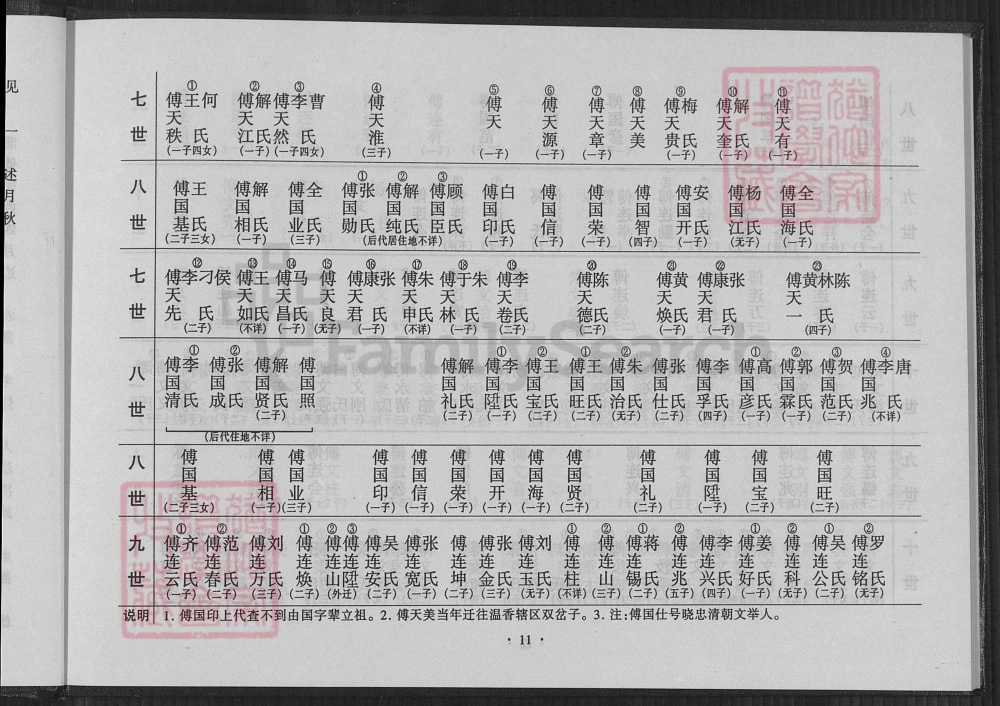 见
一
述
月
秋
七世 ①傅天秩 王何氏(一子四女) ②傅天江 解氏(一子) ③傅天然 李曹氏(一子四女) ④傅天淮(三子) ⑤傅天(一子) ⑥傅天源(一子) ⑦傅天章(一子) ⑧傅天美 ⑨傅天贵 梅氏(一子) ⑩傅天奎 解氏(一子) ⑪傅天有(一子)
八世 傅国基 王氏(二子三女) 傅国相 解氏(一子) 傅国业 全氏(三子) ①傅国勋 张氏 ②傅国纯 解氏 ③傅国臣 顾氏(后代居住地不详) 傅国印 白氏(一子) 傅国信(一子) 傅国荣(一子) 傅国智(四子) 傅国开 安氏(一子) 傅国江 杨氏(无子) 傅国海 全氏(一子)
七世 ⑫傅天先 李刁侯氏(二子) ⑬傅天如 王氏(不详) ⑭傅天昌 马氏(一子) ⑮傅天良(无子) ⑯傅天君 康张氏(一子) ⑰傅天申 朱氏(不详) ⑱傅天林 于朱氏(一子) ⑲傅天卷 李氏(二子) ⑳傅天德 陈氏(二子) ㉑傅天焕 黄氏(一子) ㉒傅天君 康张氏(一子) ㉓傅天一 黄林陈氏(四子)
八世 ①傅国清 李氏 ②傅国成 张氏 傅国贤 解氏(二子) 傅国照 (后代住地不详) 傅国礼 解氏(二子) ①傅国陞 李氏(一子) ②傅国宝 王氏(二子) ①傅国旺 王氏(二子) ②傅国治 朱氏(无子) 傅国仕 张氏(二子) 傅国孚 李氏(四子) ①傅国彦 高氏(一子) ②傅国霖 郭氏(一子) ③傅国范 贺氏(二子) ④傅国兆 李唐氏(不详)
八世 傅国基(二子三女) 傅国相(一子) 傅国业(三子) 傅国印(一子) 傅国信(一子) 傅国荣(一子) 傅国开(一子) 傅国海(一子) 傅国贤(二子) 傅国礼(二子) 傅国陞(一子) 傅国宝(二子) 傅国旺(二子)
九世 ①傅连云 齐氏(一子) ②傅连春 范氏(二子) 傅连万 刘氏(三子) ①傅连焕(一子) ②傅连山(外迁) ③傅连陞(二子) 傅连安 吴氏(二子) 傅连宽 张氏(一子) 傅连坤(二子) 傅连金 张氏(三子) 傅连玉 刘氏(无子) ①傅连柱(不详) ②傅连山(三子) ①傅连锡 蒋氏(四子) ②傅连兆(五子) 傅连兴 李氏(四子) ①傅连好 姜氏(一子) ②傅连科(无子) ①傅连公 吴氏(二子) ②傅连铭 罗氏(无子)
说明 1.傅国印上代查不到由国字辈立祖。2.傅天美当年迁往温香辖区双岔子。3.注:傅国仕号晓忠清朝文举人。
·11·
FamilySearch